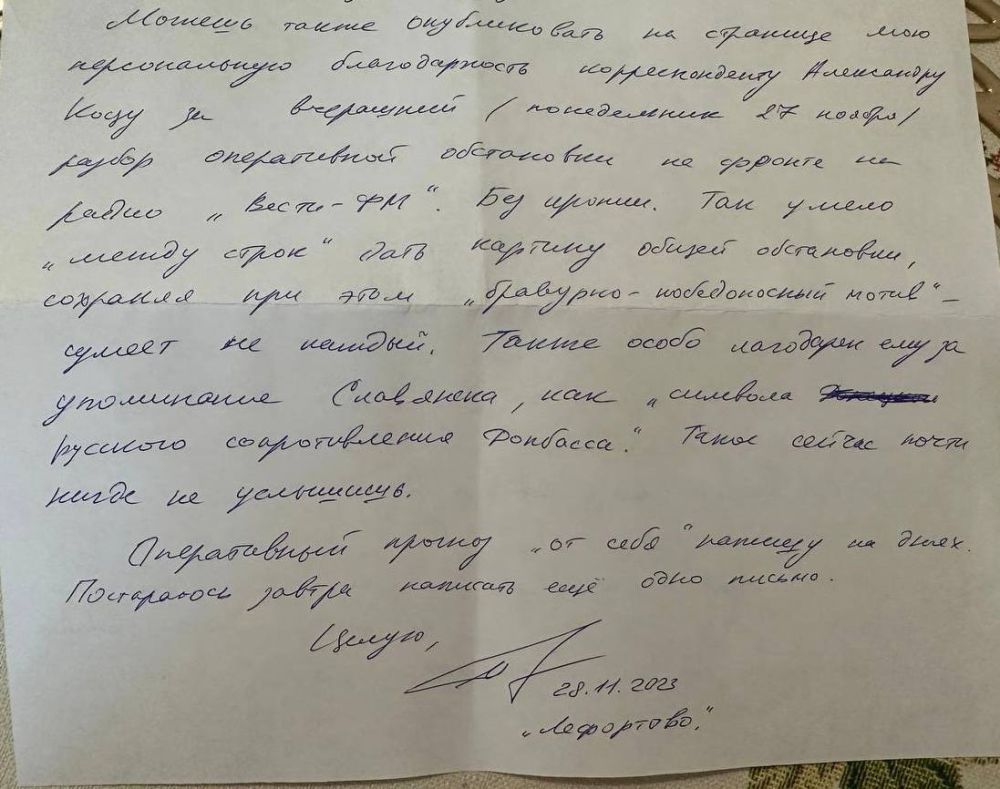 Можешь также опубликовать на странице мою
персональную благодарность корреспонденту Александру
Коцу за вчерашний /понедельник 27 ноября/
разбор оперативной обстановки на фронте на
радио „Вести-ФМ“. Без иронии. Так умело
„между строк“ дать картину общей обстановки,
сохраняя при этом „бравурно-победоносный мотив“ –
сумеет не каждый. Также особо лагодарен ему за
упоминание Славянска, как „символа
русского сопротивления Донбасса“. Такое сейчас почти
нигде не услышишь.
Оперативный прогноз „от себя“ напишу на днях.
Постараюсь завтра написать ещё одно письмо.
Целую,
28.11.2023
„Лефортово“.